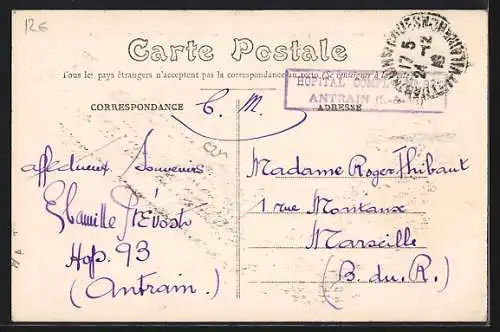 12€
Carte Postale
Tous les pays étrangers n'acceptent pas la correspondance au recto (Se renseigner à la Poste)
CORRESPONDANCE
ADRESSE
F. M.
HOPITAL COMPL
ANTRAIN
17 5
24 -12
affectueux Souvenirs
Camille Prévost
Hop. 93
(Antrain.)
Madame Roger Thibaut
1 rue Montaux
Marseille
(B. du. R.)